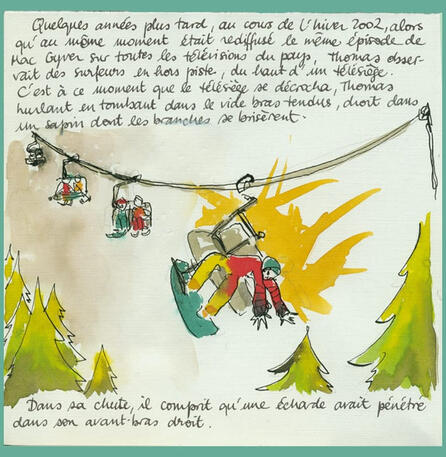 Quelques années plus tard, au cours de l'hiver 2002, alors
qu'au même moment était rediffusé le même épisode de
Mac Gyver sur toutes les télévisions du pays, Thomas obser-
vait des surfeurs en hors piste, du haut d'un télésiège.
C'est à ce moment que le télésiège se décrocha, Thomas
hurlant en tombant dans le vide bras tendus, droit dans
un sapin dont les branches se brisèrent.
Dans sa chute, il comprit qu'une écharde avait pénétré
dans son avant-bras droit.